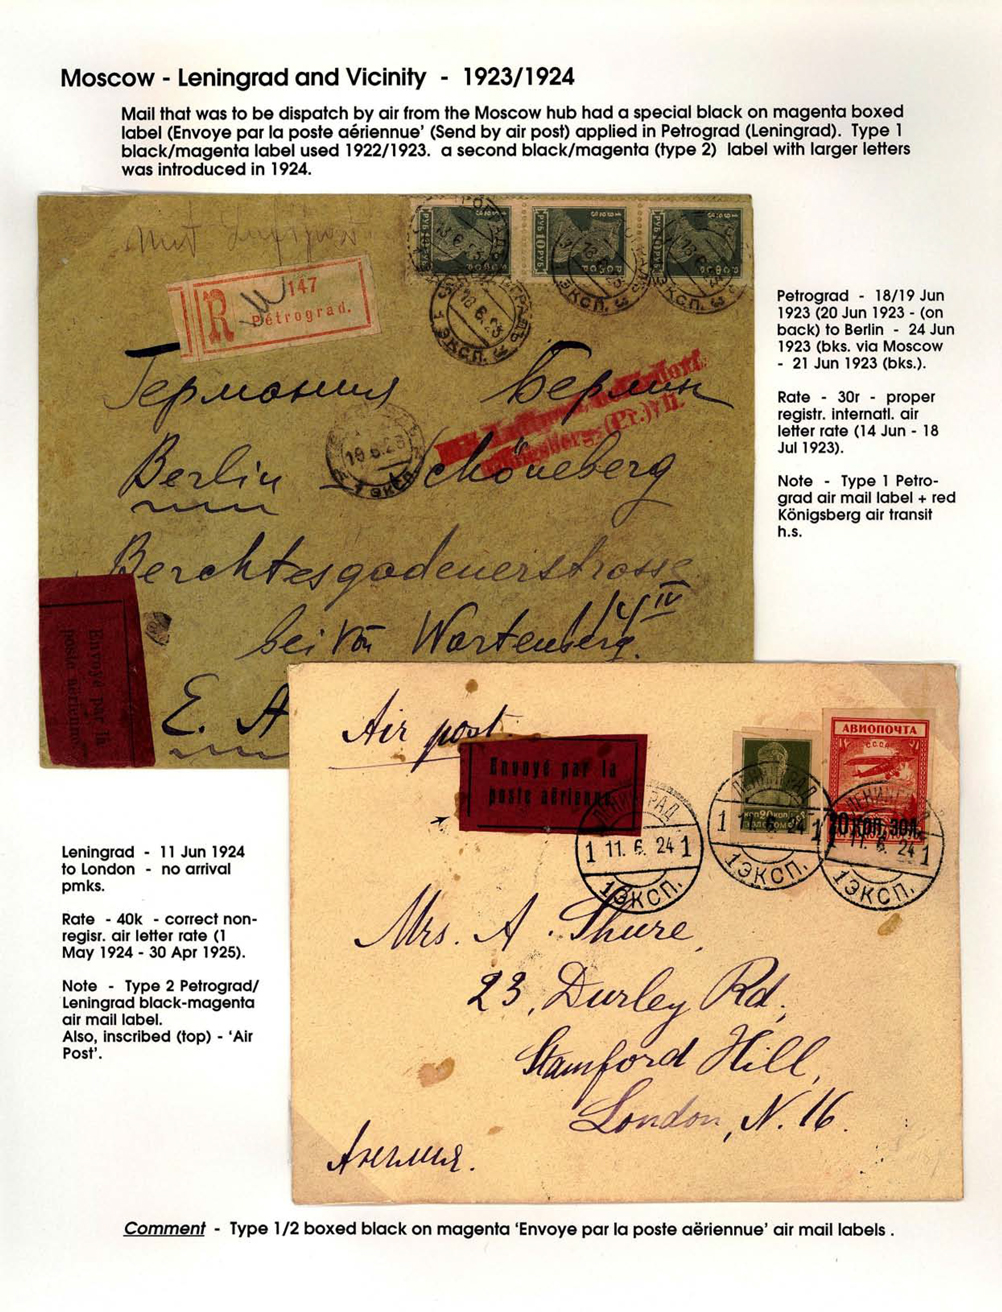 Moscow - Leningrad and Vicinity - 1923/1924
Mail that was to be dispatch by air from the Moscow hub had a special black on magenta boxed
label (Envoye par la poste aëriennue' (Send by air post) applied in Petrograd (Leningrad). Type 1
black/magenta label used 1922/1923. a second black/magenta (type 2) label with larger letters
was introduced in 1924.
Mit Luftpost
R
147
Pétrograd.
10 РУБ
1923
РСФСР
18.6.23
ЭКСП.
Германия Берлин
19.6.23
1 ЭКСП.
Berlin Schöneberg
Berchtesgadenerstrasse
14 IV
bei Von Wartenberg.
E. A
Envoyé par la
poste aérienne
Petrograd - 18/19 Jun
1923 (20 Jun 1923 - (on
back) to Berlin - 24 Jun
1923 (bks. via Moscow
- 21 Jun 1923 (bks.).
Rate - 30r - proper
registr. internatl. air
letter rate (14 Jun - 18
Jul 1923).
Note - Type 1 Petro-
grad air mail label + red
Königsberg air transit
h.s.
Air post.
Envoyé par la
poste aérienne
АВИОПОЧТА
С.С.С.Р.
10 КОП. ЗОЛ.
ЛЕНИНГРАД
1 11.6.24 1
1ЭКСП.
ЛЕНИНГРАД
1 11.6.24 1
1ЭКСП.
ЛЕНИНГРАД
11.6.24 1
1ЭКСП.
Mrs. A. Shure
23, Durley Rd.
Stamford Hill,
London, N. 16.
Англия.
Leningrad - 11 Jun 1924
to London - no arrival
pmks.
Rate - 40k - correct non-
regisr. air letter rate (1
May 1924 - 30 Apr 1925).
Note - Type 2 Petrograd/
Leningrad black-magenta
air mail label.
Also, inscribed (top) - 'Air
Post'.
Comment - Type 1/2 boxed black on magenta 'Envoye par la poste aëriennue' air mail labels .